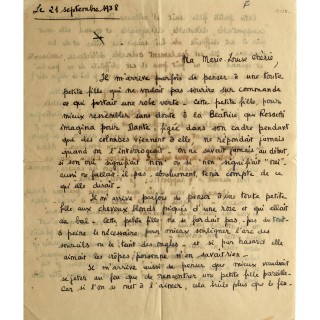 Le 21 septembre 1938
Ma Marie-Louise Chérie
Il m'arrive parfois de penser à une toute
petite fille qui ne voulait pas sourire sur commande
et qui portait une robe verte. Cette petite fille, pour
mieux ressembler sans doute à la Béatrice que Rossetti
imagina pour Dante, figée dans son cadre pendant
que des colombes viennent à elle, ne répondait jamais
quand on l'interrogeait. On ne savait jamais au début,
si son oui signifiait "non" ou si non signifiait "oui"
aussi ne fallait-il pas, absolument, tenir compte de ce
qu'elle disait.
Il m'arrive parfois de penser à une toute petite
fille aux cheveux blonds piqués d'une rose et qui allait
au bal. Cette petite fille ne se fardait pas, pas du tout
à peine le nécessaire, pour mieux souligner l'arc des
sourcils ou le bout des ongles. et si par hasard elle
aimait les crêpes, personne n'en savait rien.
Il m'arrive aussi de penser que mieux vaudrait
se jeter au feu que de rencontrer une petite fille pareille
Car si l'on se met à l'aimer, cela brûle plus que le feu.